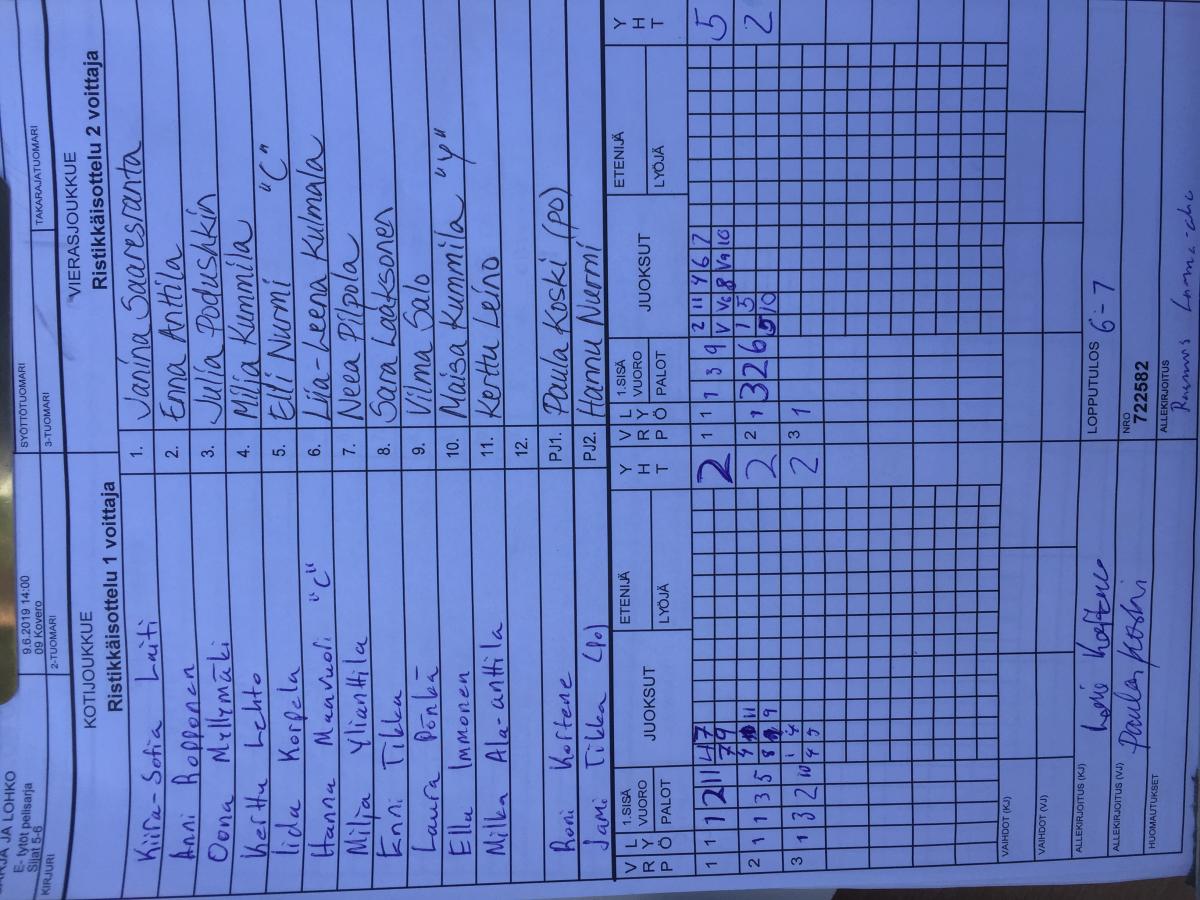 SARJA JA LOHKO
E- tytöt pelisarja
Sijat 5-6
9.6.2019 14:00
09 Kovero
KIRJURI
2-TUOMARI
SYÖTTÖTUOMARI
3-TUOMARI
TAKARAJATUOMARI
KOTIJOUKKUE
Ristikkäisottelu 1 voittaja
VIERASJOUKKUE
Ristikkäisottelu 2 voittaja
Kiira-Sofia Laiti 1. Janina Saaresranta
Anni Ropponen 2. Enna Anttila
Oona Myllymäki 3. Julia Podushkin
Kerttu Lehto 4. Milja Kummila
Iida Korpela 5. Elli Nurmi "C"
Hanna Maavuoli "C" 6. Liia-Leena Kulmala
Milja Ylianttila 7. Neea Pilpola
Enni Tikka 8. Sara Laaksonen
Laura Pönkä 9. Vilma Salo
Ella Immonen 10. Maisa Kummila "Y"
Milka Ala-anttila 11. Kerttu Leino
12.
PJ1. Paula Koski (PO)
Jami Tikka (PO) PJ2. Hannu Nurmi
VRP LYÖ 1.SISÄVUORO PALOT JUOKSUT ETENIJÄ LYÖJÄ YHT
VRP LYÖ 1.SISÄVUORO PALOT JUOKSUT ETENIJÄ LYÖJÄ YHT
1 1 1 2 11 4 7 2
7 9
2 1 1 3 5 2
3 1 3 2 10 2
1 1 1 3 9 2 11 4 6 7 5
2 1 3 2 6 1 5 2
3 1
VAIHDOT (KJ)
VAIHDOT (VJ)
ALLEKIRJOITUS (KJ)
LOPPUTULOS 6-7
ALLEKIRJOITUS (VJ) Paula Koski
NRO
722582
HUOMAUTUKSET
ALLEKIRJOITUS